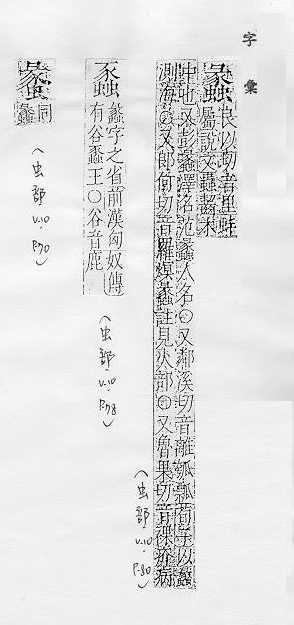 字彙
蠡 良以切音里蛀
屬說文蟲齧木
中也又彭蠡澤名范蠡人名○又鄰溪切音離瓠瓢荀子以蠡
測海○又郎何切音羅 蠡註見 部○又魯果切音裸疥病
(虫部 v.10 P.80)
蠡字之省前漢匈奴傳
有谷蠡王○谷音鹿
(虫部 v.10 P.78)
同
蠡
(虫部 v.10 P.90)